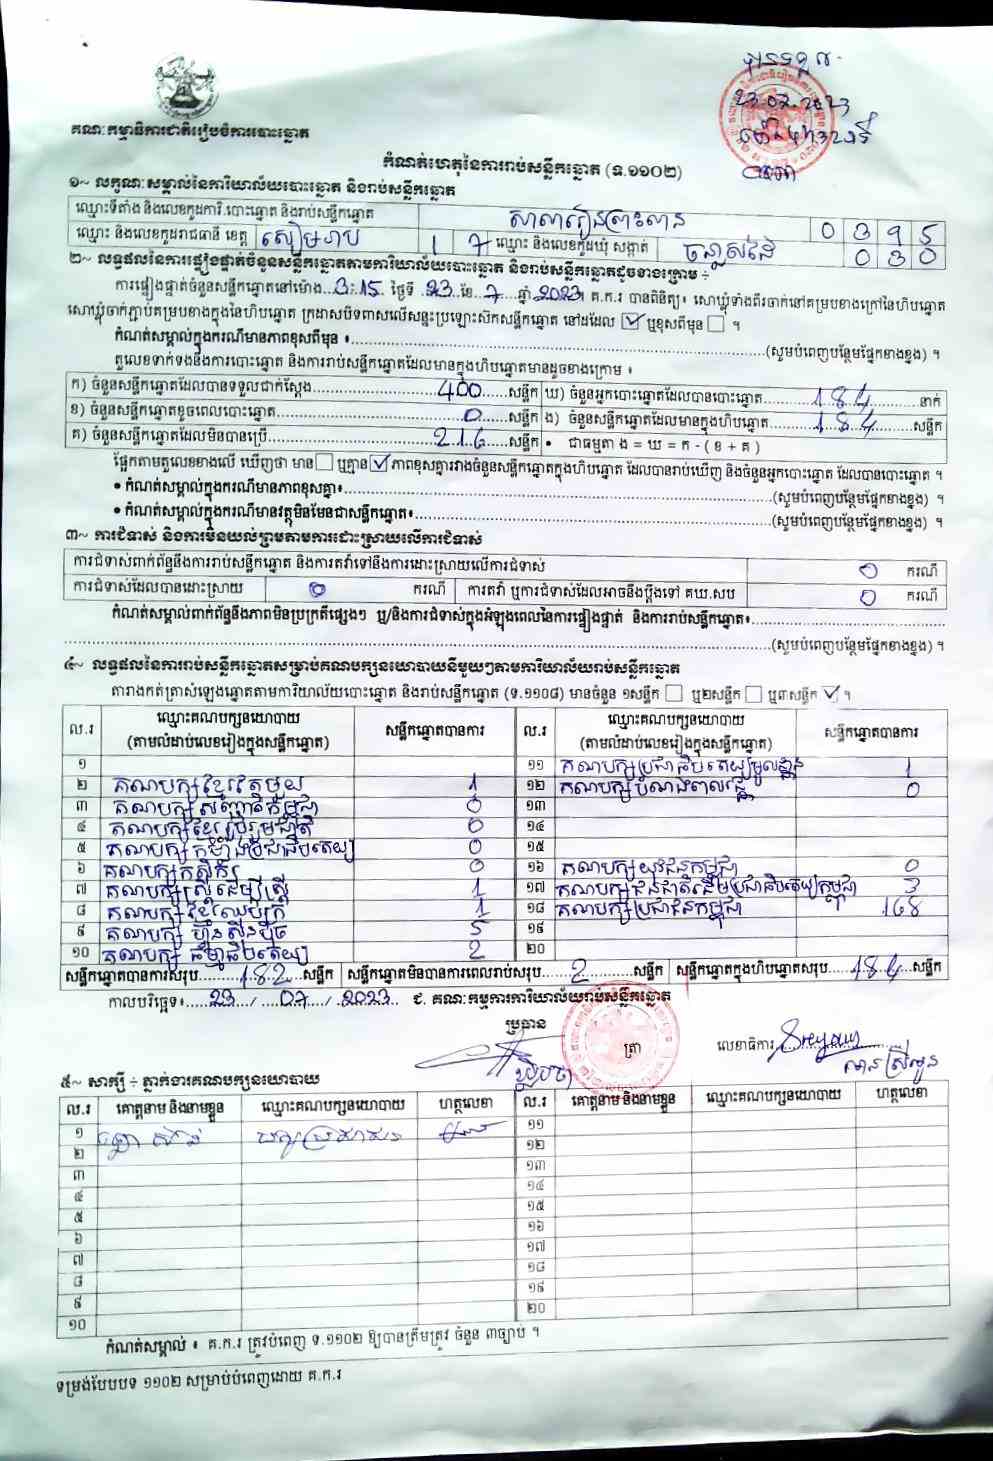 បានទទួល
23.07.2023
គណៈកម្មាធិការជាតិរៀបចំការបោះឆ្នោត
កំណត់ហេតុនៃការរាប់សន្លឹកឆ្នោត (ទ.១១០២)
១~ លក្ខណៈសម្គាល់នៃការិយាល័យបោះឆ្នោត និងរាប់សន្លឹកឆ្នោត
ឈ្មោះទីតាំង និងលេខកូដការិ.បោះឆ្នោត និងរាប់សន្លឹកឆ្នោត សាលារៀនព្រះពាន 0 3 9 5
ឈ្មោះ និងលេខកូដរាជធានី ខេត្ត សៀមរាប 1 7 ឈ្មោះ និងលេខកូដឃុំ សង្កាត់ ចន្លាស់ដៃ 0 3 0
២~ លទ្ធផលនៃការផ្ទៀងផ្ទាត់ចំនួនសន្លឹកឆ្នោតតាមការិយាល័យបោះឆ្នោត និងរាប់សន្លឹកឆ្នោតដូចខាងក្រោម ÷
ការផ្ទៀងផ្ទាត់ចំនួនសន្លឹកឆ្នោតនៅម៉ោង 3:15 ថ្ងៃទី 23 ខែ 7 ឆ្នាំ 2023 ។ គ.ក.រ បានពិនិត្យ៖ សោឃ្លុំទាំងពីរចាក់នៅគម្របខាងក្រៅនៃហិបឆ្នោត
សោឃ្លុំចាក់ភ្ជាប់គម្របខាងក្នុងនៃហិបឆ្នោត ក្រដាសបិទពាសលើសន្ទះប្រឡោះសិកសន្លឹកឆ្នោត នៅដដែល ☑ ឬខុសពីមុន ☐ ។
កំណត់សម្គាល់ក្នុងករណីមានភាពខុសពីមុន ៖ (សូមបំពេញបន្ថែមផ្នែកខាងខ្នង) ។
តួលេខទាក់ទងនឹងការបោះឆ្នោត និងការរាប់សន្លឹកឆ្នោតដែលមានក្នុងហិបឆ្នោតមានដូចខាងក្រោម ៖
ក) ចំនួនសន្លឹកឆ្នោតដែលបានទទួលជាក់ស្ដែង 400 សន្លឹក ឃ) ចំនួនអ្នកបោះឆ្នោតដែលបានបោះឆ្នោត 184 នាក់
ខ) ចំនួនសន្លឹកឆ្នោតខូចពេលបោះឆ្នោត 0 សន្លឹក ង) ចំនួនសន្លឹកឆ្នោតដែលមានក្នុងហិបឆ្នោត 184 សន្លឹក
គ) ចំនួនសន្លឹកឆ្នោតដែលមិនបានប្រើ 216 សន្លឹក • ជាធម្មតា ង = ឃ = ក - ( ខ + គ )
ផ្អែកតាមតួលេខខាងលើ ឃើញថា មាន ☐ ឬគ្មាន ☑ ភាពខុសគ្នារវាងចំនួនសន្លឹកឆ្នោតក្នុងហិបឆ្នោត ដែលបានរាប់ឃើញ និងចំនួនអ្នកបោះឆ្នោត ដែលបានបោះឆ្នោត ។
• កំណត់សម្គាល់ក្នុងករណីមានភាពខុសគ្នា៖ (សូមបំពេញបន្ថែមផ្នែកខាងខ្នង) ។
• កំណត់សម្គាល់ក្នុងករណីមានវត្ថុមិនមែនជាសន្លឹកឆ្នោត៖ (សូមបំពេញបន្ថែមផ្នែកខាងខ្នង) ។
៣~ ការជំទាស់ និងការមិនយល់ព្រមតាមការដោះស្រាយលើការជំទាស់
ការជំទាស់ពាក់ព័ន្ធនឹងការរាប់សន្លឹកឆ្នោត និងការតវ៉ាទៅនឹងការដោះស្រាយលើការជំទាស់ 0 ករណី
ការជំទាស់ដែលបានដោះស្រាយ 0 ករណី ការតវ៉ា ឬការជំទាស់ដែលអាចនឹងប្ដឹងទៅ គឃ.សប 0 ករណី
កំណត់សម្គាល់ពាក់ព័ន្ធនឹងភាពមិនប្រក្រតីផ្សេងៗ ឬ/និងការជំទាស់ក្នុងអំឡុងពេលនៃការផ្ទៀងផ្ទាត់ និងការរាប់សន្លឹកឆ្នោត៖
(សូមបំពេញបន្ថែមផ្នែកខាងខ្នង) ។
៤~ លទ្ធផលនៃការរាប់សន្លឹកឆ្នោតសម្រាប់គណបក្សនយោបាយនីមួយៗតាមការិយាល័យរាប់សន្លឹកឆ្នោត
តារាងកត់ត្រាសំឡេងឆ្នោតតាមការិយាល័យបោះឆ្នោត និងរាប់សន្លឹកឆ្នោត (ទ.១១០៨) មានចំនួន ១សន្លឹក ☐ ឬ២សន្លឹក ☐ ឬ៣សន្លឹក ☑ ។
ល.រ ឈ្មោះគណបក្សនយោបាយ (តាមលំដាប់លេខរៀងក្នុងសន្លឹកឆ្នោត) សន្លឹកឆ្នោតបានការ ល.រ ឈ្មោះគណបក្សនយោបាយ (តាមលំដាប់លេខរៀងក្នុងសន្លឹកឆ្នោត) សន្លឹកឆ្នោតបានការ
១ ១១ គណបក្សប្រជាធិបតេយ្យមូលដ្ឋាន 1
២ គណបក្សខ្មែរតែមួយ 1 ១២ គណបក្សបំណងពលរដ្ឋ 0
៣ គណបក្សសញ្ជាតិកម្ពុជា 0 ១៣
៤ គណបក្សខ្មែររួបរួមជាតិ 0 ១៤
៥ គណបក្សកម្លាំងប្រជាធិបតេយ្យ 0 ១៥
៦ គណបក្សកសិករ 0 ១៦ គណបក្សយុវជនកម្ពុជា 0
៧ គណបក្សស្ត្រីដើម្បីស្ត្រី 1 ១៧ គណបក្សជនជាតិដើមប្រជាធិបតេយ្យកម្ពុជា 3
៨ គណបក្សខ្មែរឈប់ក្រ 1 ១៨ គណបក្សប្រជាជនកម្ពុជា 168
៩ គណបក្សហ៊្វុនស៊ីនប៉ិច 5 ១៩
១០ គណបក្សធម្មាធិបតេយ្យ 2 ២០
សន្លឹកឆ្នោតបានការសរុប 182 សន្លឹក សន្លឹកឆ្នោតមិនបានការពេលរាប់សរុប 2 សន្លឹក សន្លឹកឆ្នោតក្នុងហិបឆ្នោតសរុប 184 សន្លឹក
កាលបរិច្ឆេទ៖ 23 / 07 / 2023 ជ. គណៈកម្មការការិយាល័យរាប់សន្លឹកឆ្នោត
ប្រធាន
ត្រា
លេខាធិការ
៥~ សាក្សី ÷ ភ្នាក់ងារគណបក្សនយោបាយ
ល.រ គោត្តនាម និងនាមខ្លួន ឈ្មោះគណបក្សនយោបាយ ហត្ថលេខា ល.រ គោត្តនាម និងនាមខ្លួន ឈ្មោះគណបក្សនយោបាយ ហត្ថលេខា
១ ១១
២ ១២
៣ ១៣
៤ ១៤
៥ ១៥
៦ ១៦
៧ ១៧
៨ ១៨
៩ ១៩
១០ ២០
កំណត់សម្គាល់ ៖ គ.ក.រ ត្រូវបំពេញ ទ.១១០២ ឱ្យបានត្រឹមត្រូវ ចំនួន ៣ច្បាប់ ។
ទម្រង់បែបបទ ១១០២ សម្រាប់បំពេញដោយ គ.ក.រ